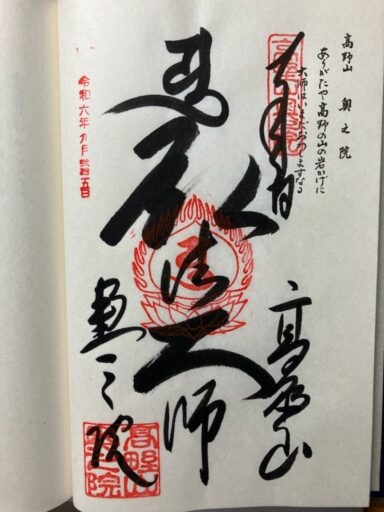 高野山 奥之院
ありがたや高野の山の岩かげに
大師はいまだおわしますなる
奉拝
高野山
弘法大師
奥之院
令和六年九月弐拾五日
高野山
奥之院